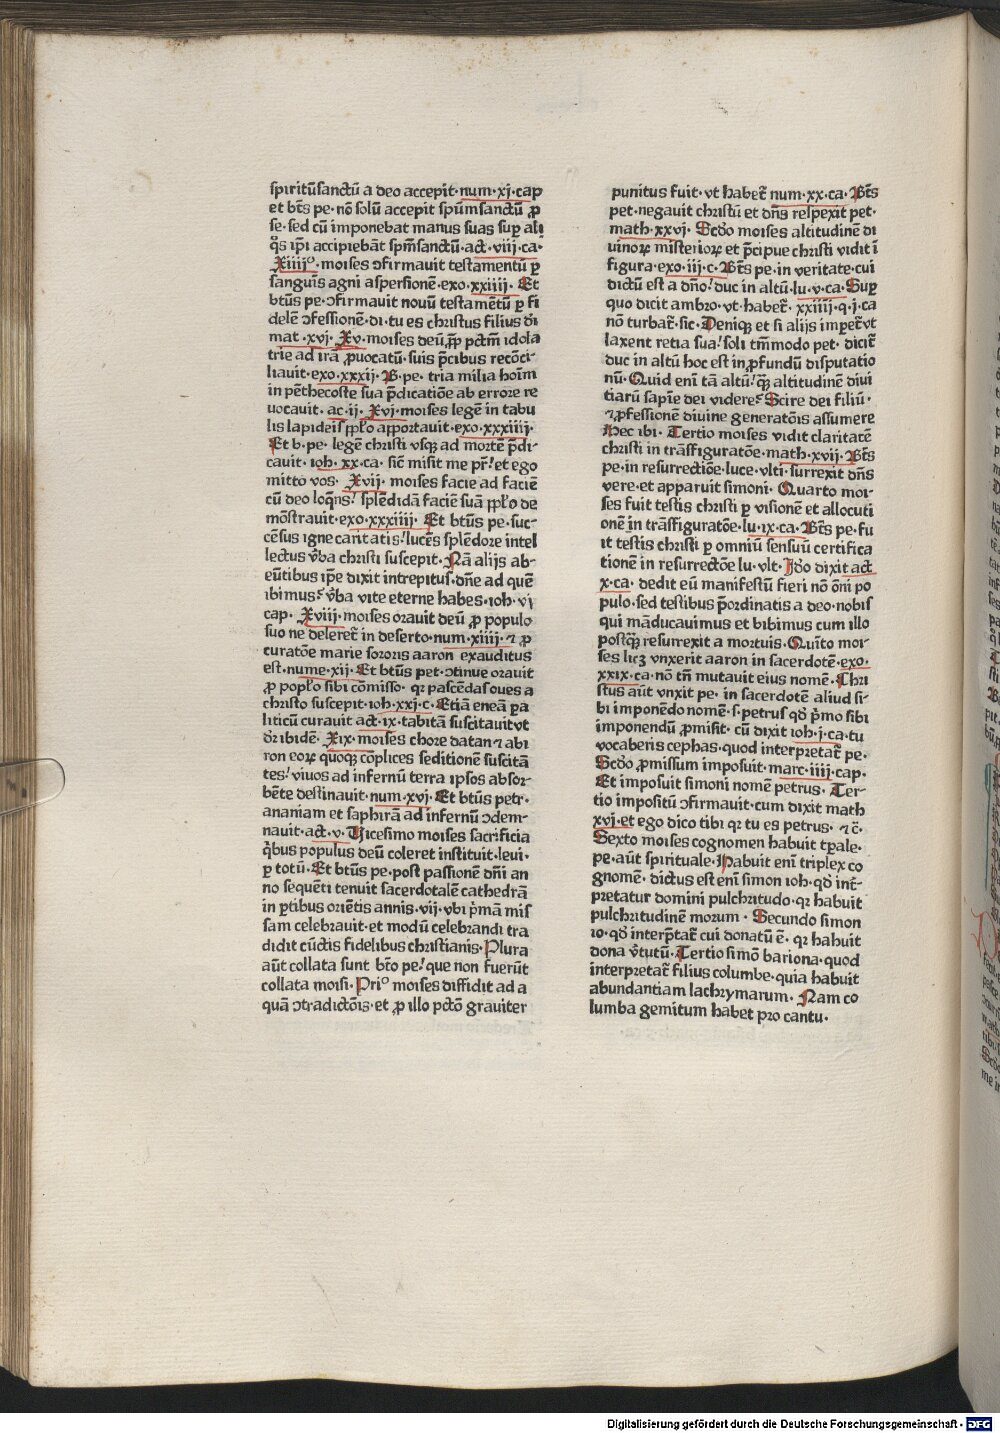 spiritūsanctū a deo accepit·num·xj·cap
et bt̄s pe·nō solū accepit spūmsanctū ꝓ
se·sed cū imponebat manus suas suꝑ ali
q̄s ip̄i accipiebāt spm̄sanctū·act·viij·ca·
Xiiij°·moises ↄfirmauit testamentū ꝑ
sanguis agni aspersionē·exo·xxiiij· Et
btūs pe·ↄfirmauit nouū testamētū ꝑ fi
delē ↄfessionē·di·tu es christus filius dī
mat·xvj· Xv·moises deū ꝓꝑ pctm̄ idola
trie ad irā ꝓuocatū·suis p̄cibus recōci-
liauit·exo·xxxij· B·pe· tria milia hoīm
in pēthecoste sua p̄dicatiōe ab errore re
uocauit·ac·ij· Xvj·moises legē in tabu
lis lapideis ppl̄o apportauit·exo·xxxiiij·
Et b·pe· legē christi vsqꝫ ad mortē p̄di-
cauit·ioh·xx·ca·sic̄ misit me pr̄·et ego
mitto vos· Xvij·moises facie ad faciē
cū deo loqn̄s·splēdidā faciē suā ppl̄o de
mōstrauit·exo·xxxiiij· Et btūs pe·suc-
cēsus igne caritatis·lucēs splēdore intel
lectus v̄ba christi suscepit·Nā alijs ab-
eūtibus ip̄e dixit intrepitus·dn̄e ad quē
ibimus·v̄ba vite eterne habes·ioh·vi
cap· Xviij·moises orauit deū ꝓ populo
suo ne deleret̄ in deserto·num·xiiij·⁊ ꝓ
curatōe marie sororis aaron exauditus
est·nume·xij· Et btūs pet·ↄtinue orauit
ꝓ popl̄o sibi cōmisso·qꝛ pascēdas oues a
christo suscepit·ioh·xxj·c·Etiā eneā ꝑa
liticū curauit act·ix·tabitā suscitauit vt
dꝛ ibidē· Xix·moises chore datan ⁊ abi
ron eoꝝ quoqꝫ cōplices seditionē suscitā
tes·viuos ad infernū terra ipsos absor-
bēte destinauit·num·xvj· Et btūs petr·
ananiam et saphirā ad infernū ↄdem-
nauit·act·v· Vicesimo moises sacrificia
q̄bus populus deū coleret instituit·leui·
ꝑ totū·Et btūs pe·post passionē dn̄i an
no sequēti tenuit sacerdotalē cathedrā
in ꝑtibus oriētis annis·vij·vbi p̄mā mis
sam celebrauit·et modū celebrandi tra
didit cūctis fidelibus christianis·Plura
aūt collata sunt bt̄o pe·que non fuerūt
collata moisi·Pri° moises diffidit ad a
quā ↄtradictōis·et ꝓ illo pctō grauiter
punitus fuit·vt habet̄ num·xx·ca·Bt̄s
pet·negauit christū et dn̄s respexit pet·
math·xxvj· Scd̄o moises altitudinē di
uinoꝝ misterioꝝ et p̄cipue christi vidit ī
figura·exo·iij·c·Bt̄s pe·in veritate·cui
dictū est a dn̄o·duc in altū·lu·v·ca·Suꝑ
quo dicit ambro·vt habet̄·xxiiij·q·j·ca
nō turbat̄·sic·Deniqꝫ et si alijs imꝑet̄ vt
laxent retia sua·soli tm̄modo pet·dicit̄
duc in altū hoc est in ꝓfundū disputatio
nū·Quid enī tā altū·qꝫ altitudinē diui
tiarū sapīe dei videre·Scire dei filiū·
⁊ ꝓfessionē diuine generatōis assumere
Hec ibi· Tertio moises vidit claritatē
christi in trāsfiguratōe·math·xvij·Bt̄s
pe·in resurrectiōe·luce·vlti·surrexit dn̄s
vere·et apparuit simoni· Quarto moi-
ses fuit testis christi ꝑ visionē et allocuti
onē in trāsfiguratōe·lu·ix·ca·Bt̄s pe·fu
it testis christi ꝑ omniū sensuū certifica
tionē in resurrectōe lu·vlt·Id̄o dixit act
x·ca· dedit eū manifestū fieri nō ōni po
pulo·sed testibus p̄ordinatis a deo·nobis
qui māducauimus et bibimus cum illo
postqꝫ resurrexit a mortuis·Quīto moi-
ses licꝫ vnxerit aaron in sacerdotē·exo·
xxix·ca·nō tn̄ mutauit eius nomē·Chri
stus aūt vnxit pe·in sacerdotē aliud si-
bi imponēdo nomē·s·petrus qd̄ p̄mo sibi
imponendū ꝓmisit·cū dixit ioh·j·ca·tu
vocaberis cephas·quod interpretat̄ pe·
Scd̄o ꝓmissum imposuit·marc·iiij·cap·
Et imposuit simoni nomē petrus· Ter-
tio impositū ↄfirmauit·cum dixit math
xvj·et ego dico tibi qꝛ tu es petrus· ⁊c̄·
Sexto moises cognomen habuit tꝑale·
pe·aūt spirituale·Habuit enī triplex co
gnomē· dictus est enī simon ioh·qd̄ int̄-
pretatur domini pulchritudo·qꝛ habuit
pulchritudinē morum· Secundo simon
io·qd̄ interp̄tat̄ cui donatū ē· qꝛ habuit
dona v̄tutū·Tertio simō bariona·quod
interpretat̄ filius columbe·quia habuit
abundantiam lachrymarum· Nam co
lumba gemitum habet pro cantu·
Digitalisierung gefördert durch die Deutsche Forschungsgemeinschaft - DFG